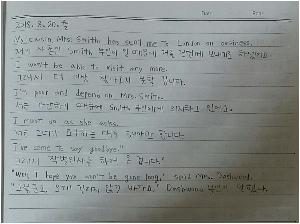 2018. 8. 20. 월
My cousin Mrs. Smith has sent me to London on business.
제 사촌인 Smith 부인이 일 때문에 저를 런던에 보내기로 하셨어요.
I won't be able to visit any more.
그래서 더 이상
I'm poor and depend on Mrs. Smith.
저는 가난하고 Smith 부인에게 의지하고 있어요.
I must do as she asks.
저는 그녀가 해야만 합니다.
I've come to say goodbye."
그래서 작별인사를 하러 온 겁니다."
"Well, I hope you won't be gone long," said Mrs. Dashwood.
Dashwood 부인이 말했다.